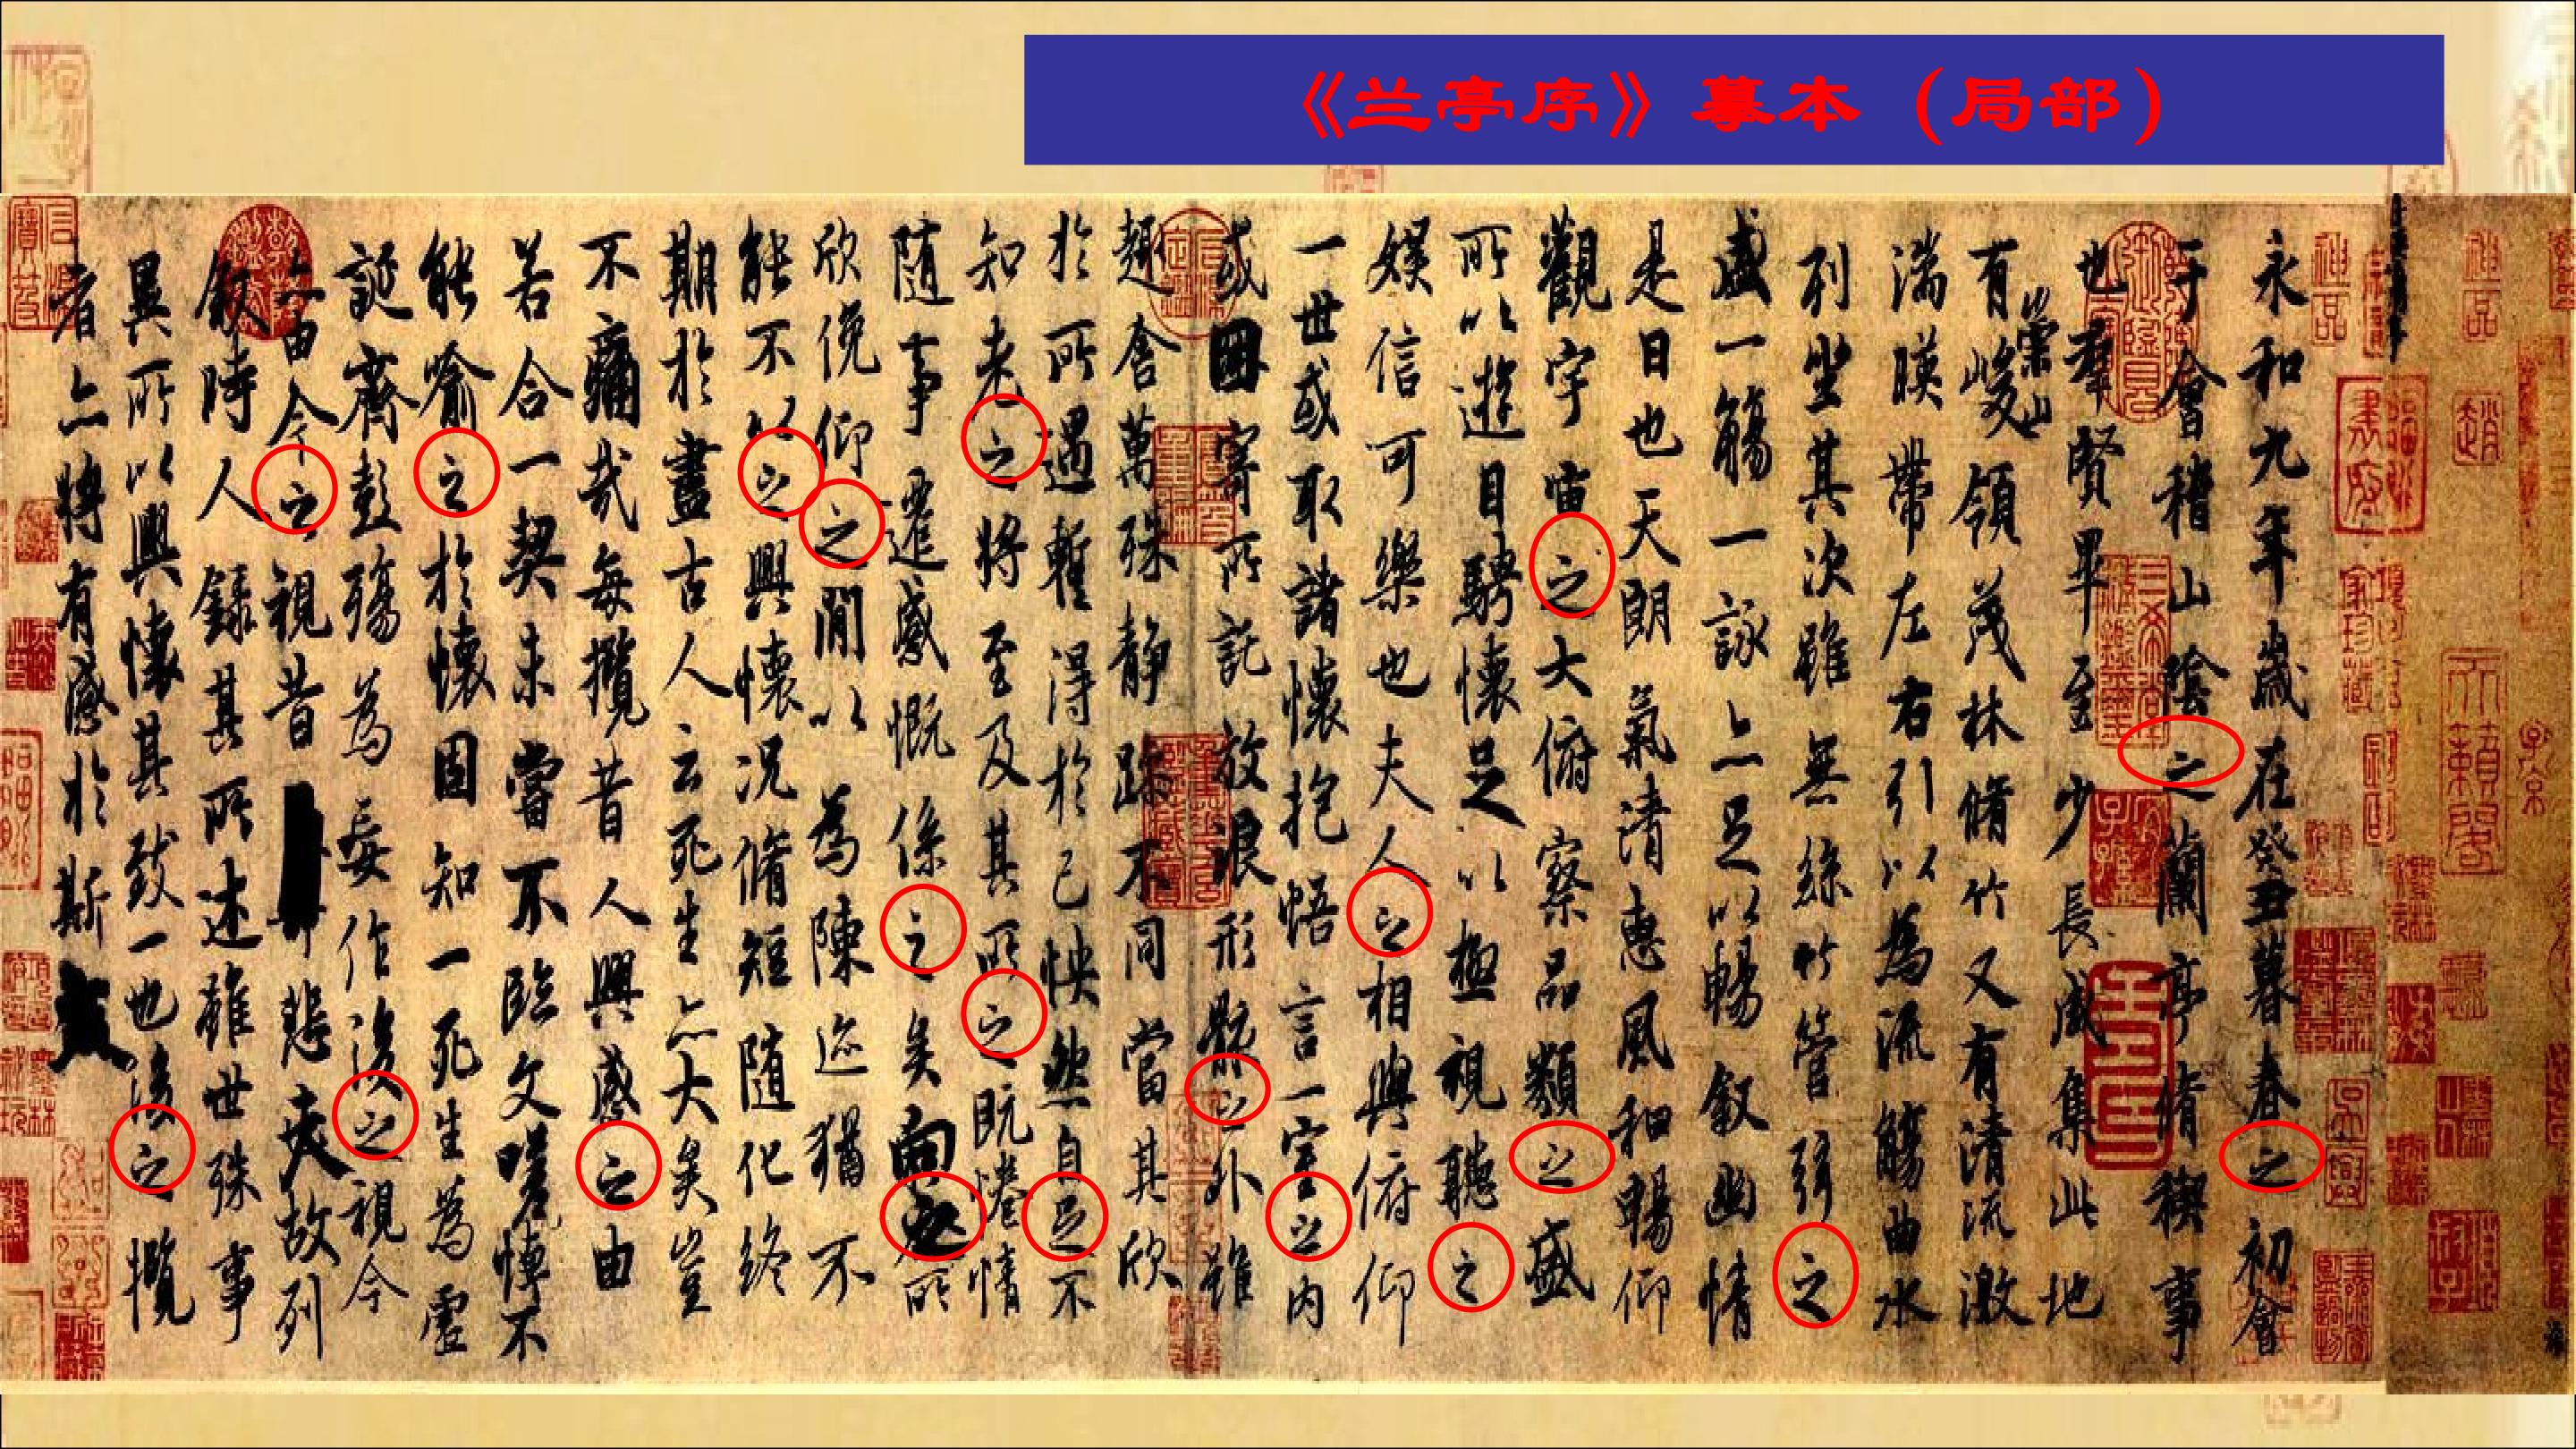 《兰亭序》摹本（局部）
永和九年歲在癸丑暮春之初會
于會稽山陰之蘭亭脩禊事
也羣賢畢至少長咸集此地
有崇山峻領茂林脩竹又有清流激
湍暎帶左右引以為流觴曲水
列坐其次雖無絲竹管弦之
盛一觴一詠亦足以暢叙幽情
是日也天朗氣清惠風和暢仰
觀宇宙之大俯察品類之盛
所以遊目騁懷足以極視聽之
娛信可樂也夫人之相與俯仰
一世或取諸懷抱悟言一室之內
或因寄所託放浪形骸之外雖
趣舍萬殊靜躁不同當其欣
於所遇暫得於己怏然自足不
知老之將至及其所之既惓情
隨事遷感慨係之矣向之所
欣俛仰之閒以為陳迹猶不
能不以之興懷況脩短隨化終
期於盡古人云死生亦大矣豈
不痛哉每攬昔人興感之由
若合一契未嘗不臨文嗟悼不
能喻之於懷固知一死生為虛
誕齊彭殤為妄作後之視今
亦由今之視昔悲夫故列
叙時人錄其所述雖世殊事
異所以興懷其致一也後之攬
者亦將有感於斯文